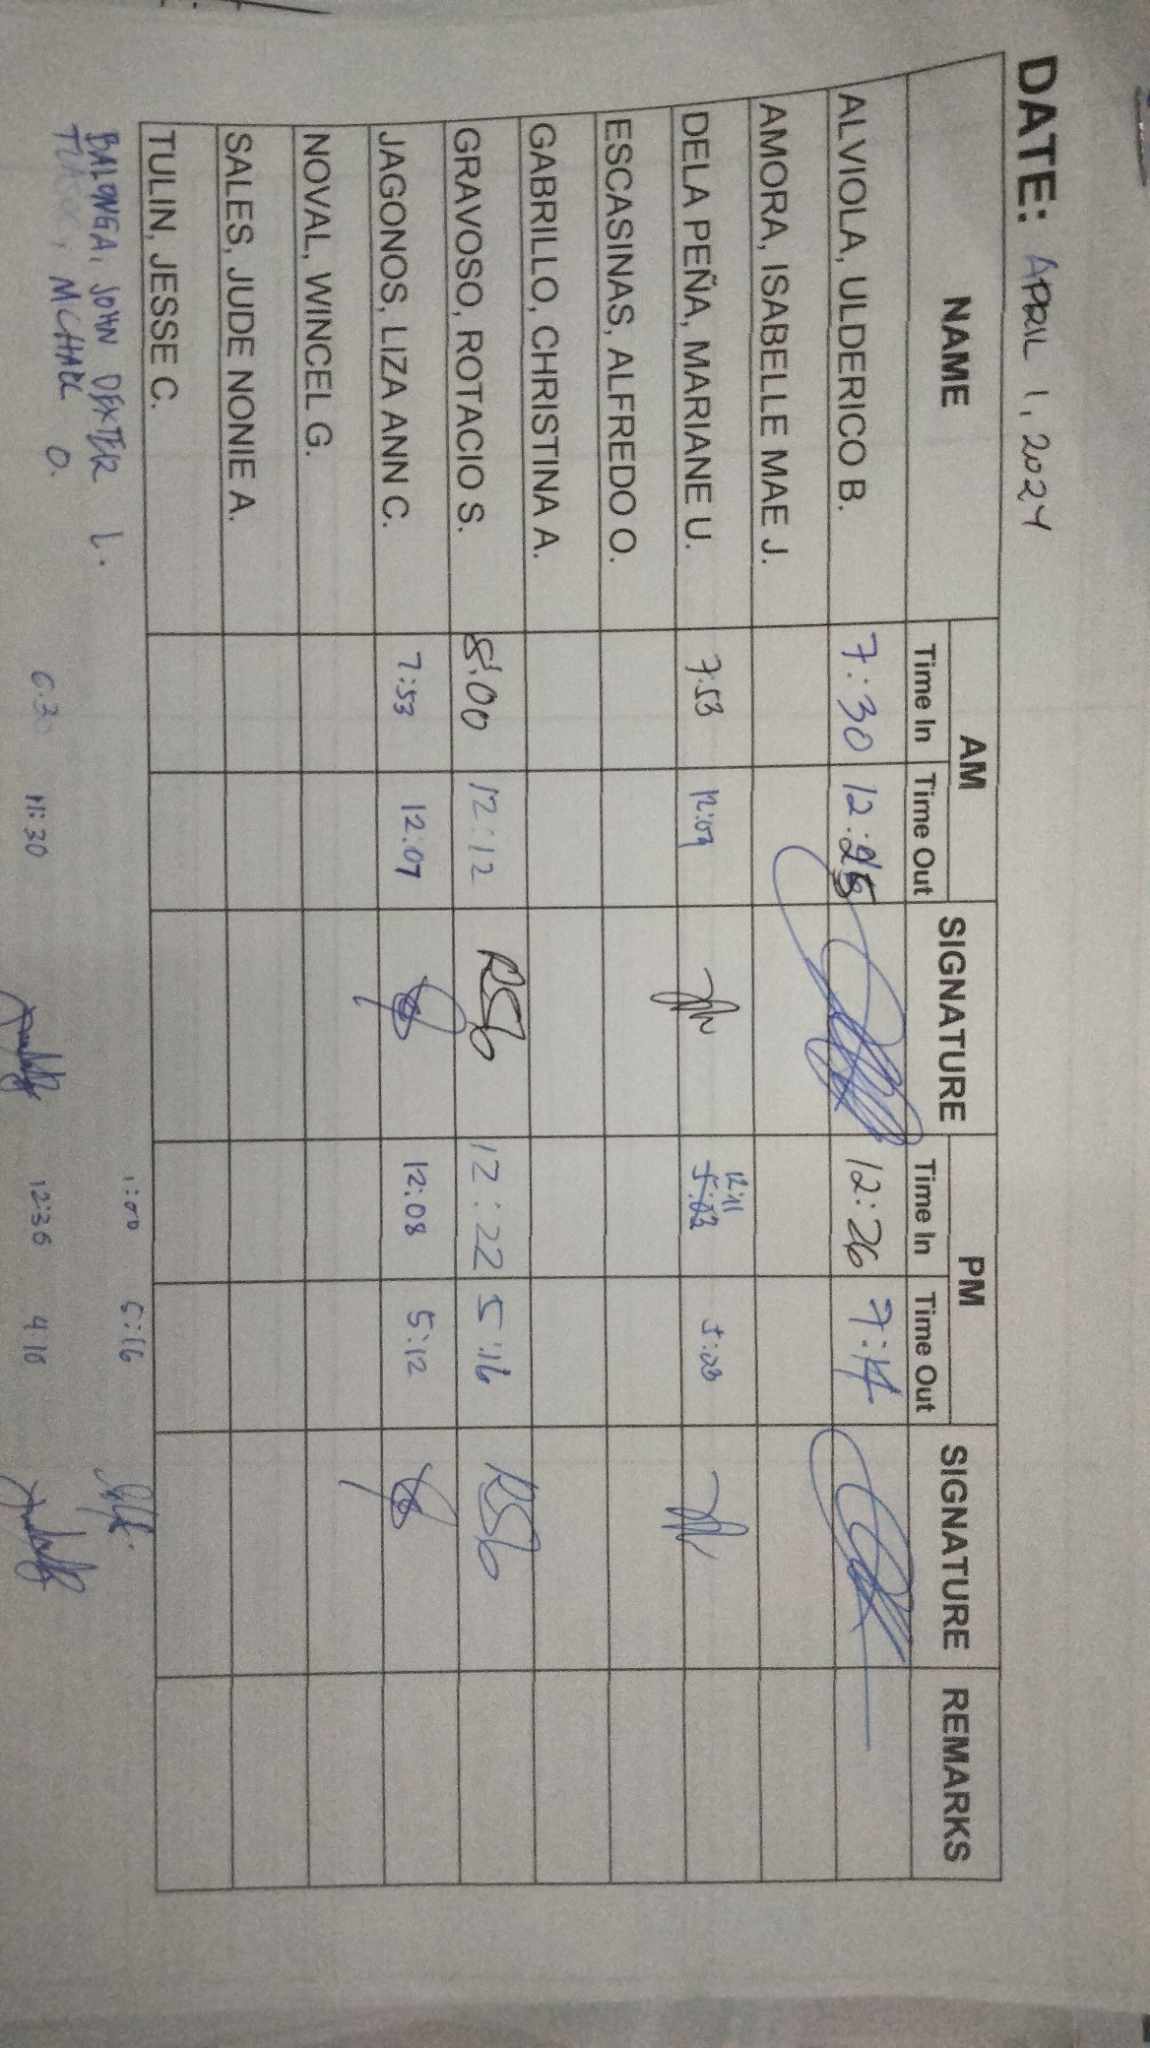 DATE: APRIL 1, 2024
NAME AM SIGNATURE PM SIGNATURE REMARKS
Time In Time Out Time In Time Out
ALVIOLA, ULDERICO B. 7:30 12:25 12:26 7:14
AMORA, ISABELLE MAE J.
DELA PEÑA, MARIANE U. 7:53 12:09 12:11 5:03
ESCASINAS, ALFREDO O.
GABRILLO, CHRISTINA A.
GRAVOSO, ROTACIO S. 8:00 12:12 RSG 12:22 5:16 RSG
JAGONOS, LIZA ANN C. 7:53 12:07 12:08 5:12
NOVAL, WINCEL G.
SALES, JUDE NONIE A.
TULIN, JESSE C.
BALONGA, JOHN DEXTER L. 1:00 5:16
MICHAEL O. 6:30 11:30 12:36 4:10